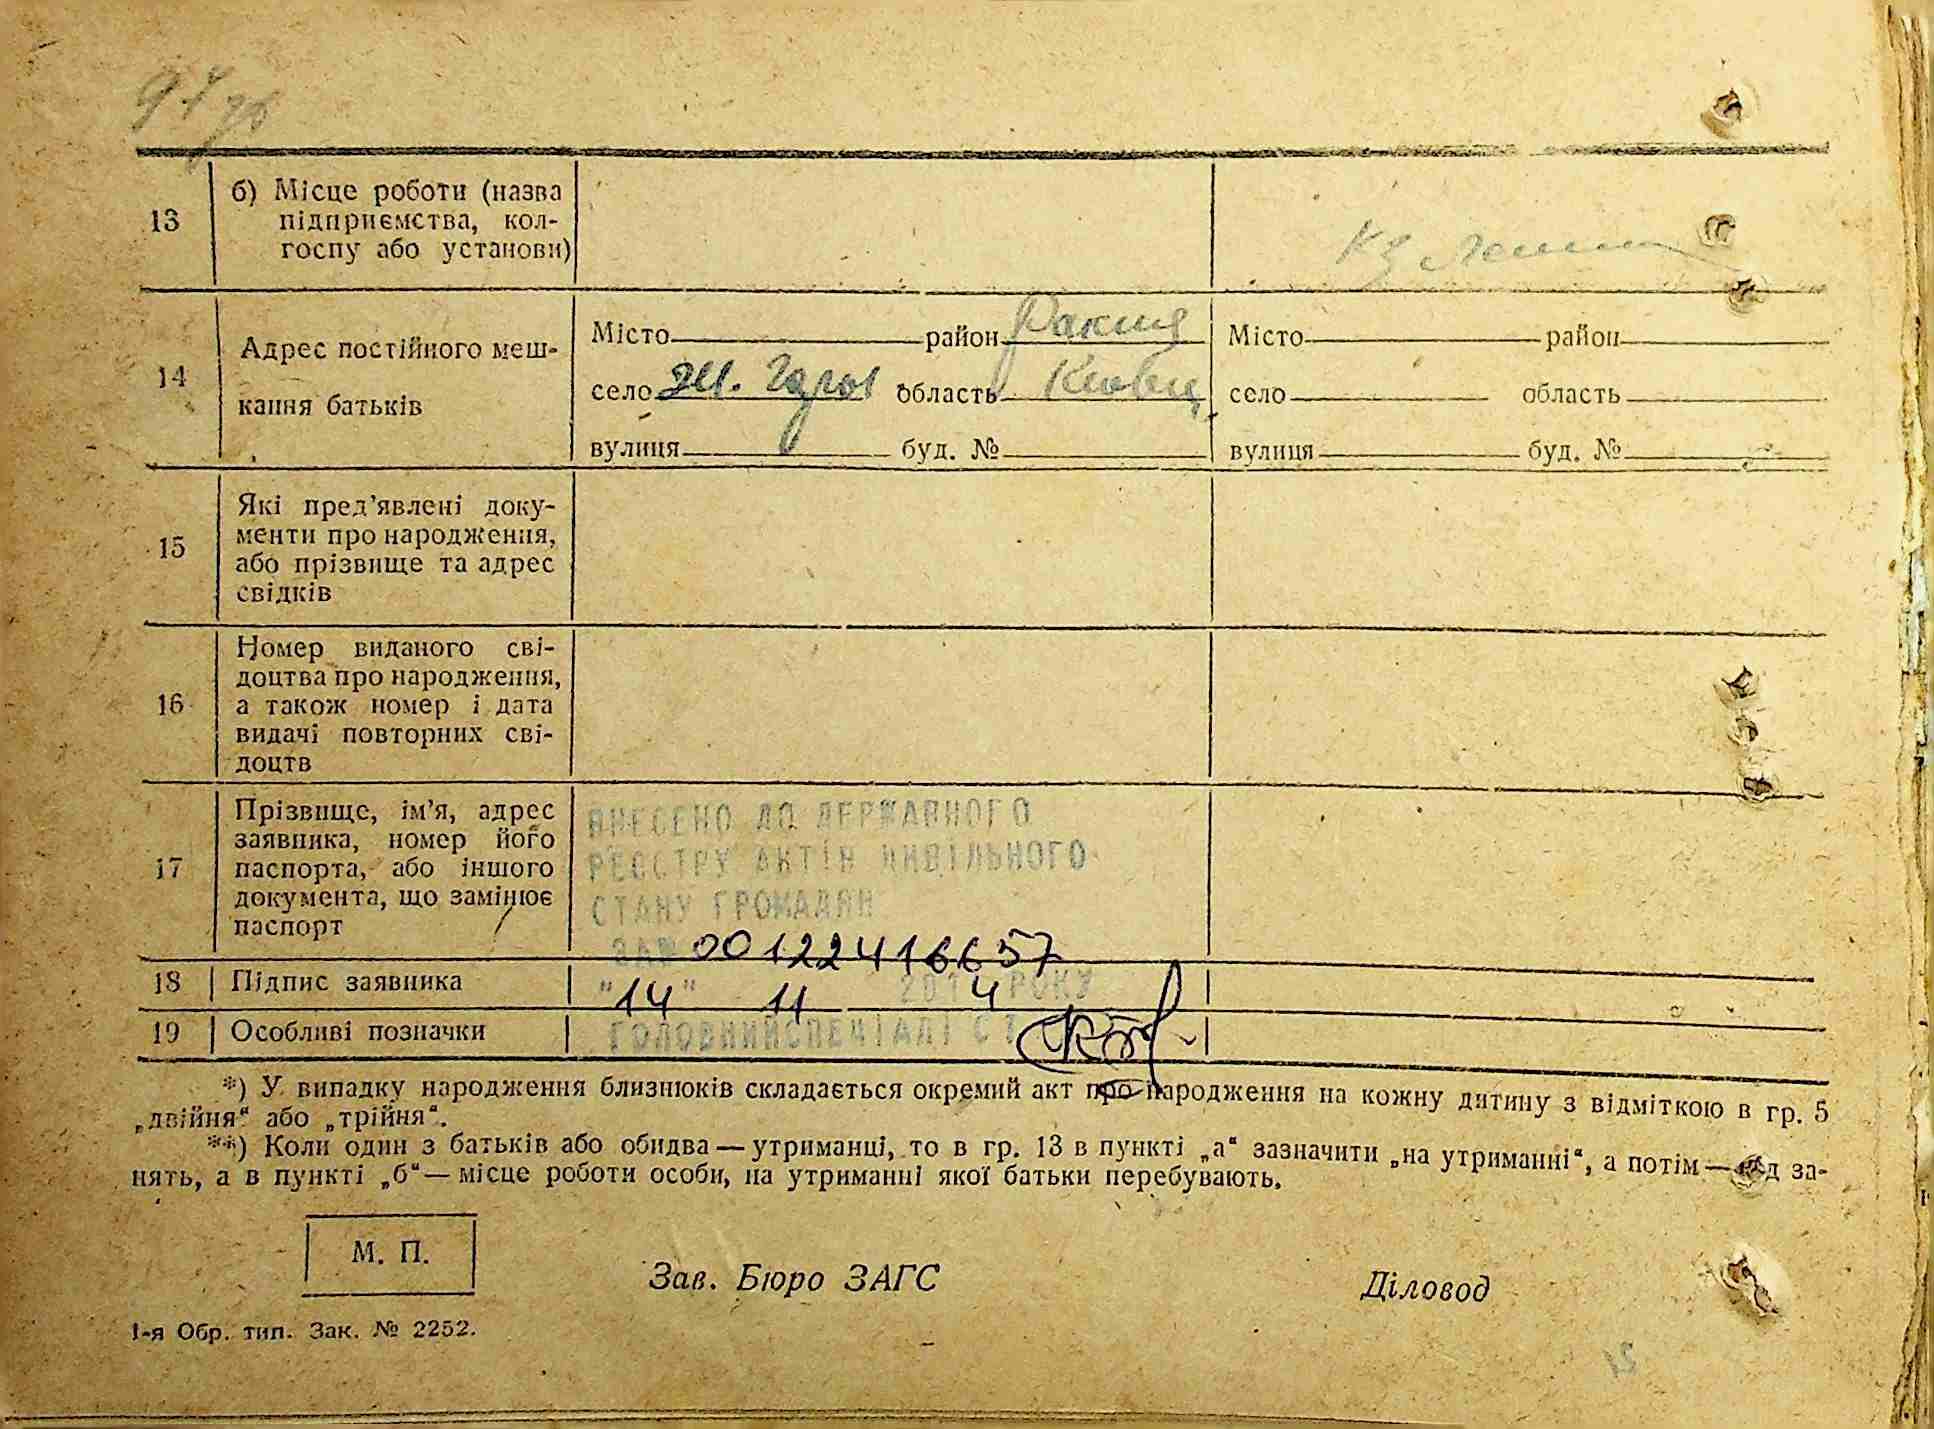 94 зв
13
б) Місце роботи (назва
підприємства, кол-
госпу або установи)
кг Леніна
14
Адрес постійного меш-
кання батьків
Місто район Ракит
село область Київ
вулиця буд. №
Місто район
село область
вулиця буд. №
15
Які пред’явлені доку-
менти про народження,
або прізвище та адрес
свідків
16
Номер виданого сві-
доцтва про народження,
а також номер і дата
видачі повторних сві-
доцтв
17
Прізвище, ім’я, адрес
заявника, номер його
паспорта, або іншого
документа, що замінює
паспорт
ВНЕСЕНО ДО ДЕРЖАВНОГО
РЕЄСТРУ АКТІВ ЦИВІЛЬНОГО
СТАНУ ГРОМАДЯН
ЗА № 00122416657
18
Підпис заявника
"14" 11 2014 РОКУ
19
Особливі позначки
ГОЛОВНИЙ СПЕЦІАЛІСТ
*) У випадку народження близнюків складається окремий акт про народження на кожну дитину з відміткою в гр. 5
„двійня“ або „трійня“.
**) Коли один з батьків або обидва—утриманці, то в гр. 13 в пункті „а“ зазначити „на утриманні“, а потім—под за-
нять, а в пункті „б“—місце роботи особи, на утриманні якої батьки перебувають.
М. П.
Зав. Бюро ЗАГС
Діловод
1-я Обр. тип. Зак. № 2252.